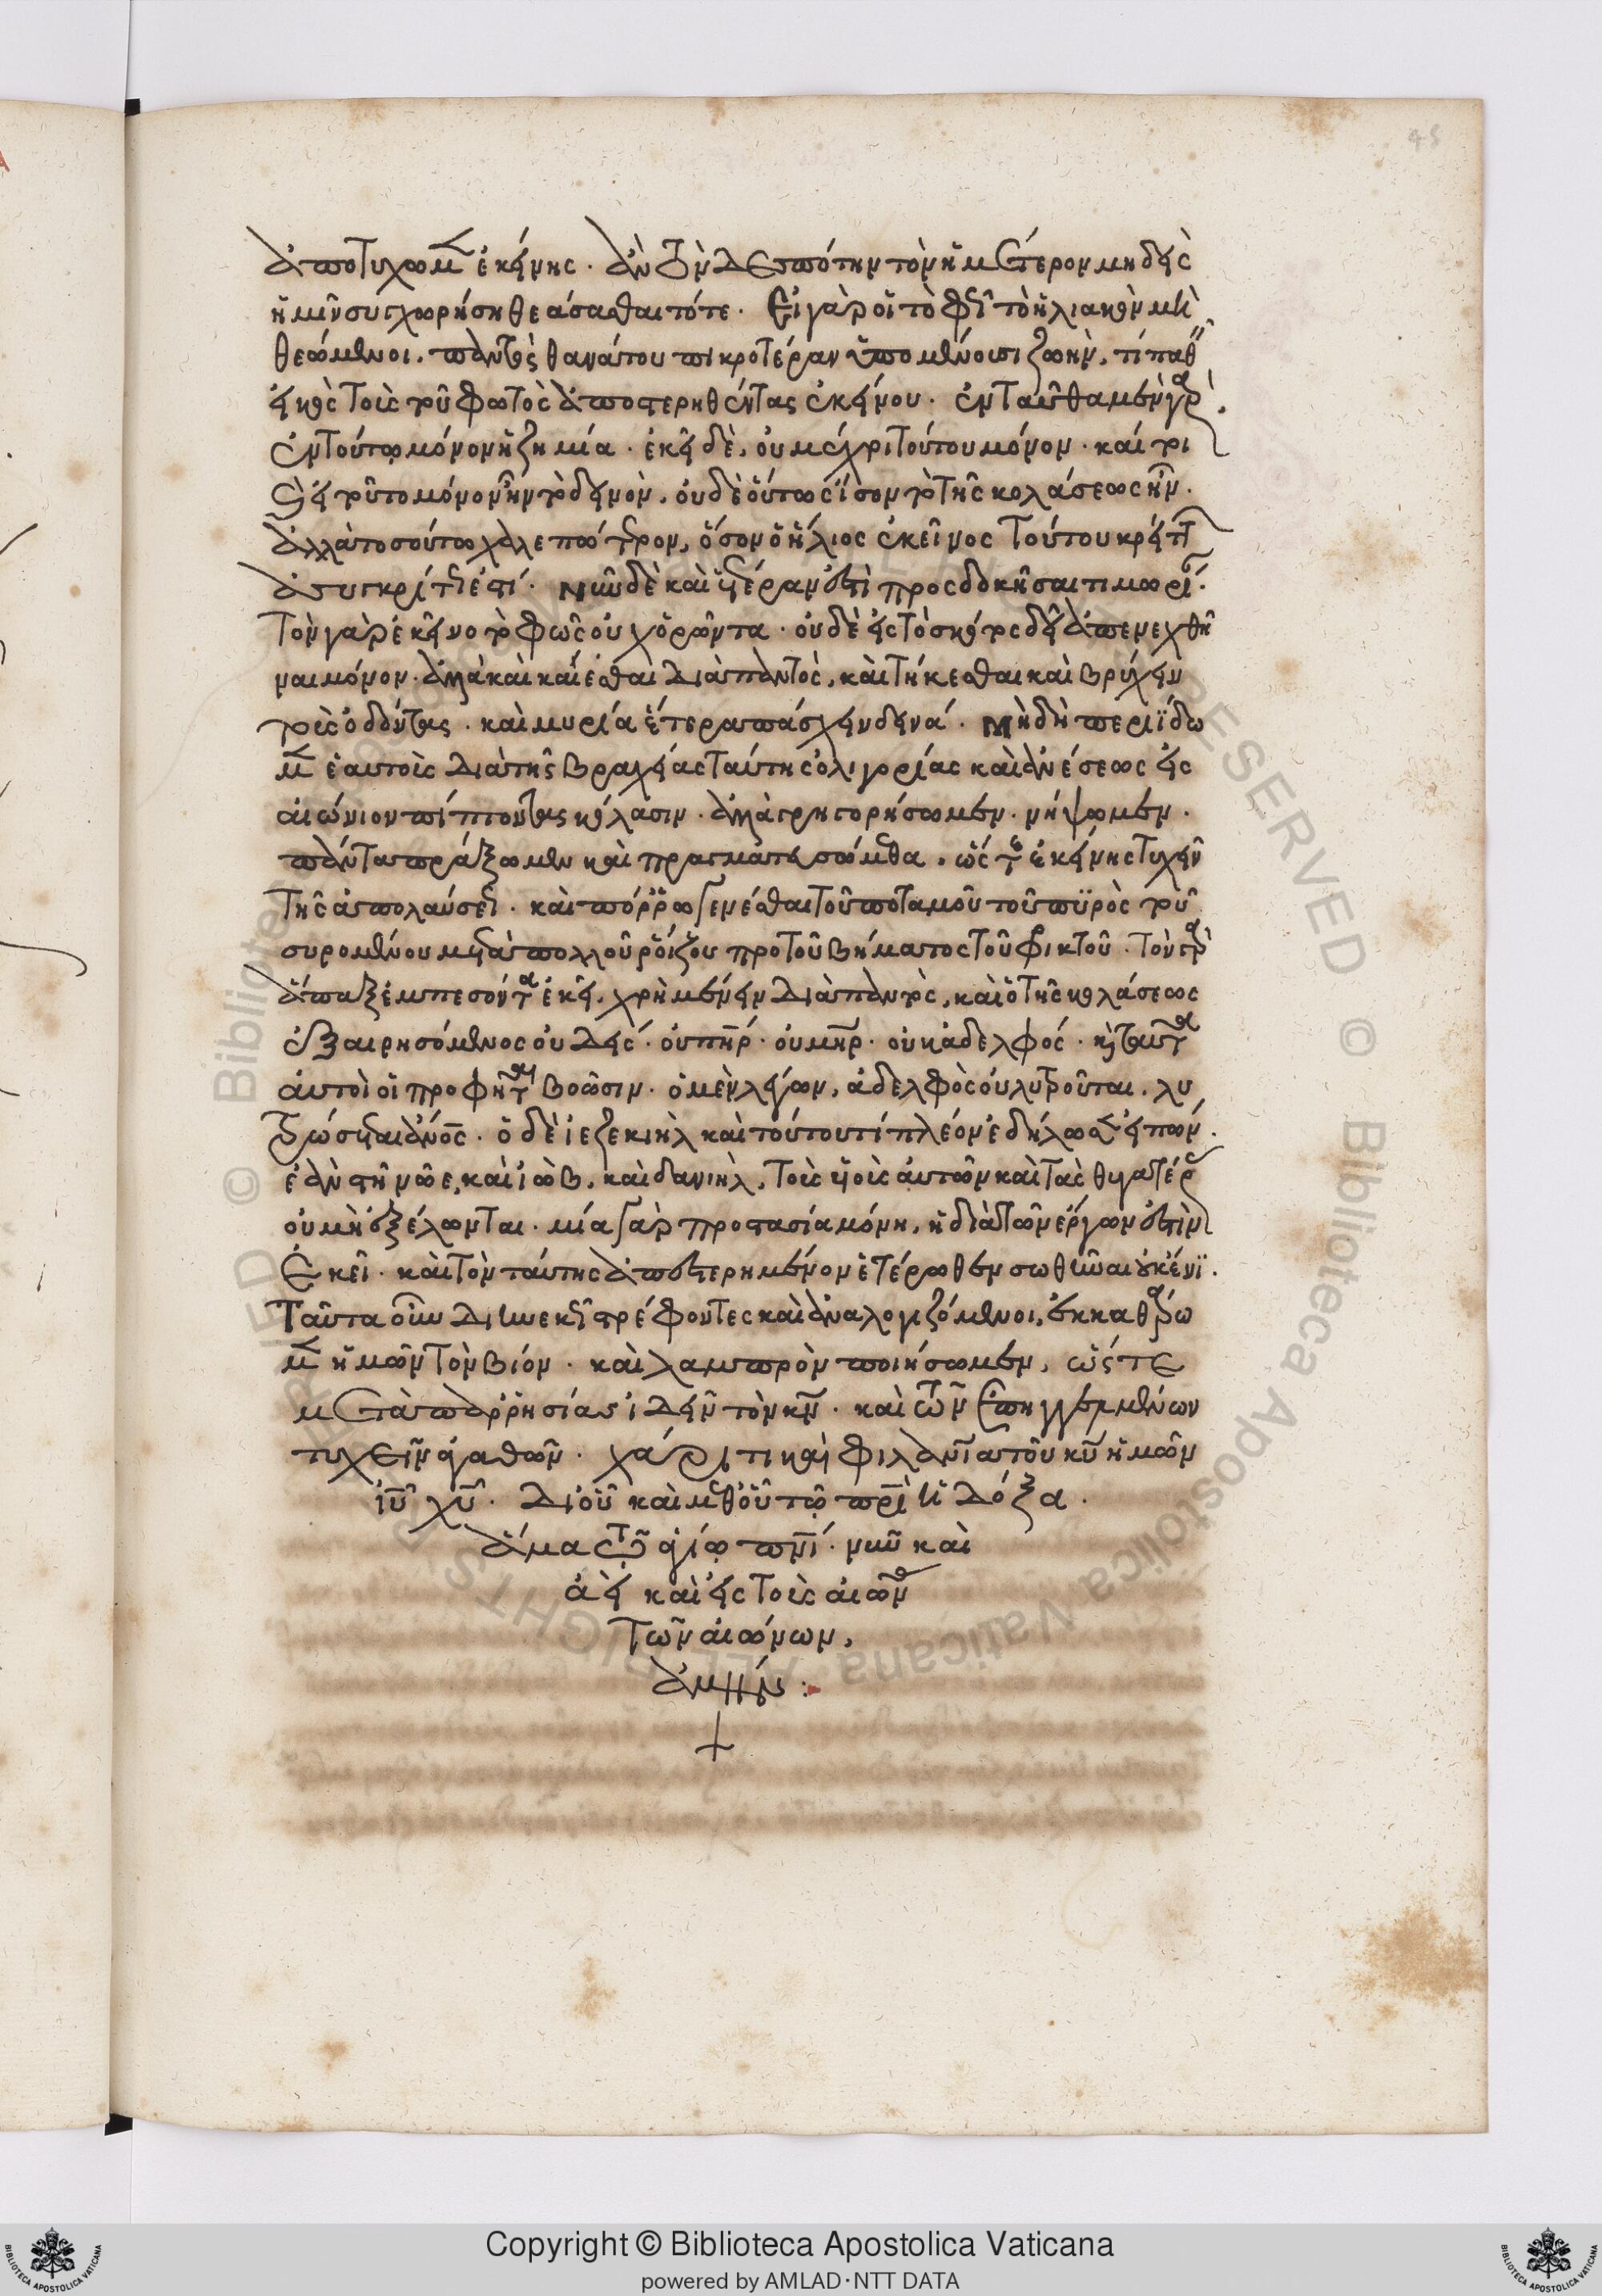 ἀποτύχωμεν ἐκείνης. ἂν τὸν δεσπότην τὸν ἡμέτερον μηδεὶς
ἡμῖν συγχωρήσῃ θεάσασθαι τότε. Εἰ γὰρ οἱ τὸ φῶς τὸ ἡλιακὸν μὴ
θεώμενοι, παντὸς θανάτου πικροτέραν ὑπομένουσι ζωήν, τί παθεῖν
εἰκὸς τοὺς τοῦ φωτὸς ἀποστερηθέντας ἐκείνου. ἐνταῦθα μὲν γὰρ,
ἐν τούτῳ μόνον ἡ ζημία. ἐκεῖ δὲ, οὐ μέχρι τούτου μόνον. καί τοι
γε εἰ τοῦτο μόνον ἦν τὸ δεινὸν, οὐδὲ οὕτως ἴσον τὸ τῆς κολάσεως ἦν.
ἀλλὰ τοσούτῳ χαλεπώτερον, ὅσον ὁ ἥλιος ἐκεῖνος τούτου κρείττων
ἀσυγκρίτως ἐστί. Νῦν δὲ καὶ ἑτέραν ἐστὶ προσδοκῆσαι τιμωρίαν.
Τὸν γὰρ ἐκεῖνο τὸ φῶς οὐχ ὁρῶντα. οὐδὲ εἰς τὸ σκότος δεῖ ἀπενεχθῆ
ναι μόνον. ἀλλὰ καὶ καίεσθαι διαπαντὸς, καὶ τήκεσθαι καὶ βρύχειν
τοὺς ὀδόντας. καὶ μυρία ἕτερα πάσχειν δεινά. Μὴ δὴ περιΐδω
μεν ἑαυτοὺς διὰ τῆς βραχείας ταύτης ὀλιγωρίας καὶ ἀνέσεως εἰς
αἰώνιον πίπτοντας κόλασιν. ἀλλὰ γρηγορήσωμεν. νήψωμεν.
πάντα πράξωμεν καὶ πραγματευσώμεθα. ὥστε ἐκείνης τυχεῖν
τῆς ἀπολαύσεως. καὶ πόρρω γενέσθαι τοῦ ποταμοῦ τοῦ πυρὸς τοῦ
συρομένου μετὰ πολλοῦ ῥοίζου πρὸ τοῦ βήματος τοῦ φρικτοῦ. Τὸν γὰρ
ἅπαξ ἐμπεσόντα ἐκεῖ, χρὴ μένειν διαπαντὸς, καὶ ὁ τῆς κολάσεως
ἐξαιρησόμενος οὐδείς. οὐ πηρ. οὐ μηρ. οὐκ ἀδελφός. καὶ ταῦτα
αὐτοὶ οἱ προφῆται βοῶσιν. ὁ μὲν λέγων, ἀδελφὸς οὐ λυτροῦται. λυ
τρώσεται ἄνος. ὁ δὲ ἰεζεκιὴλ καὶ τούτου τί πλέον ἐδήλωσεν εἰπών.
ἐὰν στῇ νῶε, καὶ ἰὼβ, καὶ δανιὴλ, τοὺς υἱοὺς αὐτῶν καὶ τὰς θυγατέρας
οὐ μὴ ἐξέλωνται. μία γὰρ προστασία μόνη, ἡ διὰ τῶν ἔργων ἐστὶν
Ἐκεῖ. καὶ τὸν ταύτης ἀπεστερημένον ἑτέρωθεν σωθῆναι οὐκ ἔνι.
Ταῦτα οὖν διηνεκῶς στρέφοντες καὶ ἀναλογιζόμενοι, ἐκκαθάρω
μεν ἡμῶν τὸν βίον. καὶ λαμπρὸν ποιήσωμεν, ὥστε
μετὰ παρρησίας ἰδεῖν τὸν κν. καὶ τῶν ἐπηγγελμένων
τυχεῖν ἀγαθῶν. χάριτι καὶ φιλανία τοῦ κυ ἡμῶν
ἰυ χυ. δι' οὗ καὶ μεθ' οὗ τῷ πρὶ ἡ δόξα.
ἅμα τῷ ἁγίῳ πνι. νῦν καὶ
ἀεὶ καὶ εἰς τοὺς αἰῶνας
τῶν αἰώνων.
ἀμήν.